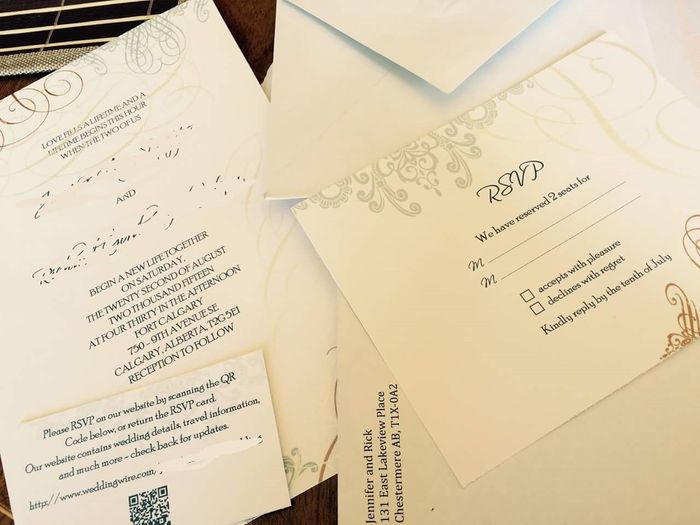 LOVE FILLS A LIFETIME AND A
LIFETIME BEGINS THIS HOUR
WHEN THE TWO OF US
AND
BEGIN A NEW LIFE TOGETHER
ON SATURDAY,
THE TWENTY SECOND OF AUGUST
TWO THOUSAND FIFTEEN
AT FOUR THIRTY IN THE AFTERNOON
FORT CALGARY
750 - 9TH AVENUE SE
CALGARY, ALBERTA, T2G 5E1
RECEPTION TO FOLLOW
Please RSVP on our website by scanning the QR
Code below, or return the RSVP card.
Our website contains wedding details, travel information,
and much more - check back for updates.
http://www.weddingwire.com/
RSVP
We have reserved 2 seats for
M
M
accepts with pleasure
declines with regret
Kindly reply by the tenth of July
Jennifer and Rick
131 East Lakeview Place
Chestermere AB, T1X-0A2